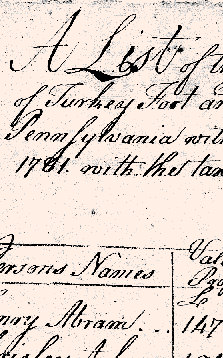 A List of th
of Turkey Foot an
Pennsylvania with
1781. with the tax
Valu
Pro
ersons Names
£
enry Abram . . . 147